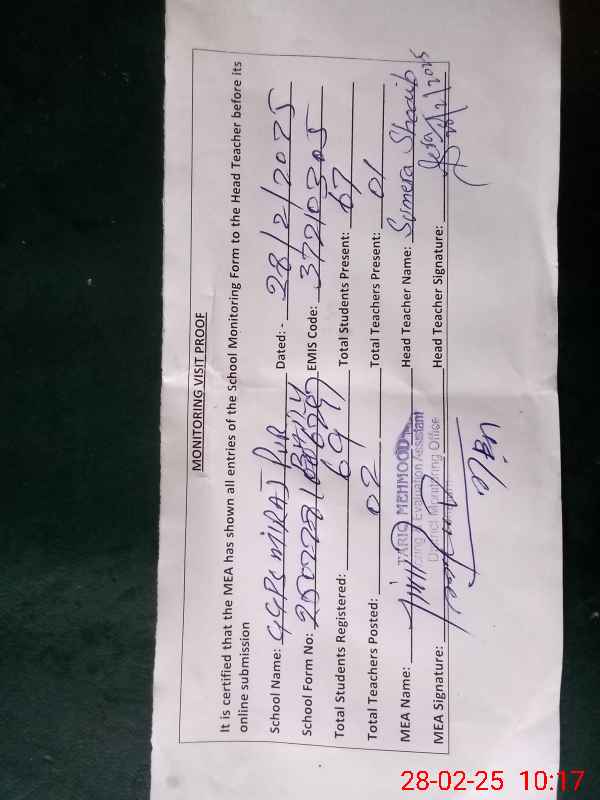 MONITORING VISIT PROOF
It is certified that the MEA has shown all entries of the School Monitoring Form to the Head Teacher before its
online submission
School Name: GGPS MIRAJ PUR Dated: - 28/2/2025
School Form No: EMIS Code: 37210305
Total Students Registered: 69 Total Students Present: 67
Total Teachers Posted: 02 Total Teachers Present: 01
MEA Name: TARIQ MEHMOOD Head Teacher Name: Sumera Shoaib
Evaluation Assistant
District Monitoring Office
MEA Signature: Head Teacher Signature: 28/2/2025
28-02-25 10:17